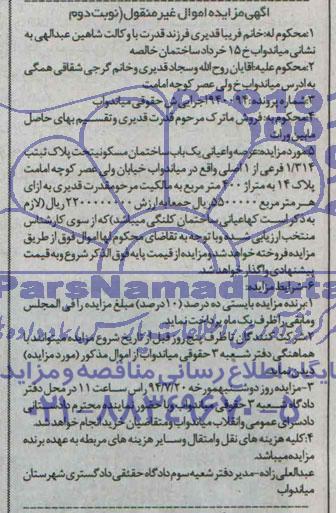 آگهی مزایده اموال غیر منقول (نوبت دوم
۱-محکوم له:خانم فریبا قدیری فرزند قدرت با وکالت شاهین عبدالهی به
نشانی میاندواب خ ۱۵ خرداد ساختمان خالصه
۲-محکوم علیه:اقایان روح الله وسجاد قدیری وخانم گرجی شقاقی همگی
به ادرس میاندواب خ ولی عصر کوچه امامت
۳-شماره پرونده:۹۴۰۰۹۴ اجرامی ش حقوقی میاندواب
۴-محکوم به:فروش ماترک مرحوم قدرت قدیری وتقسیم بهای حاصل
بین وراث
۵-مورد مزایده:عرصه واعیانی یک باب ساختمان مسکونی تحت پلاک ثبتی
۱/۳۱۴ فرعی از ۱ اصلی واقع در میاندواب خیابان ولی عصر کوچه امامت
پلاک ۱۴ به متراژ ۴۰۰ متر مربع به مالکیت مرحوم قدرت قدیری به ازای
هر متر مربع ۵۵۰۰۰۰۰ ریال جمعا به ارزش ۲۲۰۰۰۰۰۰۰۰ ریال (لازم
به ذکر است که اعیانی ساختمان کلنگی میباشد) که از سوی کارشناس
منتخب ارزیابی شده وبا توجه به تقاضای محکوم لها اموال فوق از طریق
مزایده فروخته خواهد شد ومزایده از قیمت پایه فوق الذکر شروع وبه قیمت
پیشنهادی واگذار خواهد شد.
۶-شرایط مزایده:
۱-برنده مزایده بایستی ده درصد (۱۰درصد) مبلغ مزایده را فی المجلس
ومابقی را ظرف یک ماه پرداخت نماید
۲-شرکت کنندگان تا ظرف پنج روز قبل از تاریخ شروع مزایده میتوانند با
هماهنگی دفتر شعبه ۳ حقوقی میاندواب از اموال مذکور (مورد مزایده)
دیدن نمایند
۳-مزایده روز دوشنبه مورخه ۹۴/۷/۲۰ راس ساعت ۱۱ در محل دفتر
دادگاه شعبه ۳ حقوقی میاندواب وبا حضور نماینده محترم دادستانی
دادسرای عمومی وانقلاب میاندواب ومتقاضیان خرید انجام خواهد شد.
۴:کلیه هزینه های نقل وانتقال وسایر هزینه های مربطه به عهده برنده
مزایده میباشد.
عبدالعلی زاده-مدیر دفتر شعبه سوم دادگاه حقوقی دادگستری شهرستان
میاندواب
ParsNamadData
۰۲۱-۸۸۳۴۹۶۷۰-۵